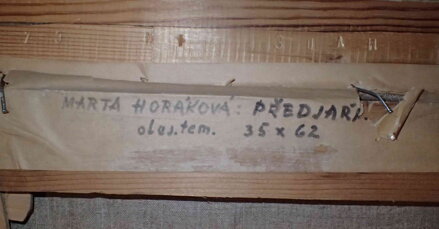 MARTA HORÁKOVÁ: PŘEDJAŘÍ.
olej.tem. 35 x 62